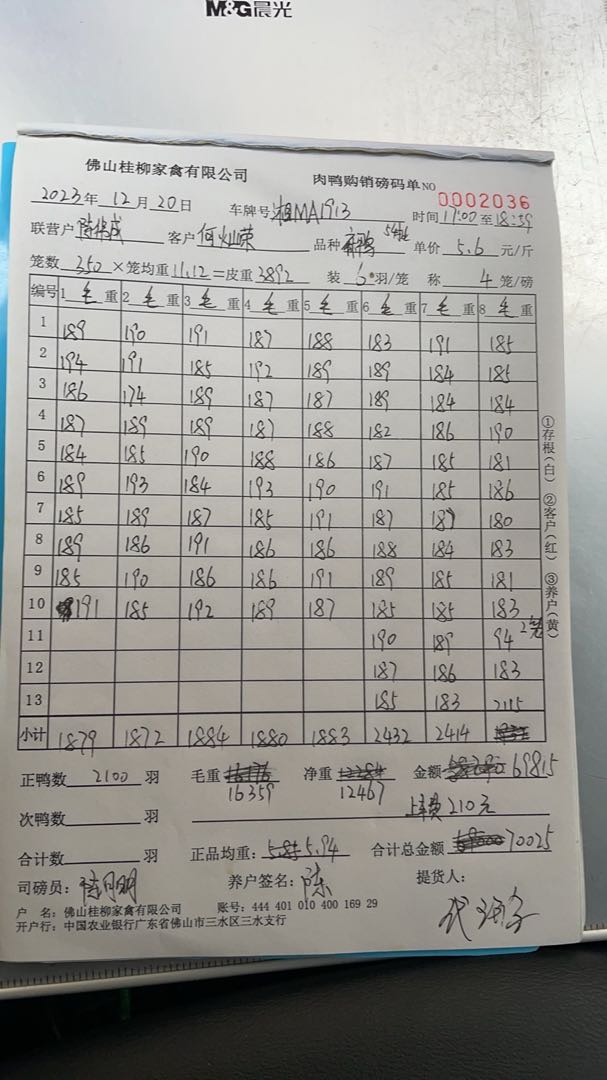 M&G晨光
佛山桂柳家禽有限公司 肉鸭购销磅码单NO 0002036
2023年 12月 20日 车牌号 湘MA1913 时间 17:00至18:59
联营户 客户 何灿荣 品种 单价 5.6 元/斤
笼数 350 ×笼均重 11.12 =皮重 3892 装 6 羽/笼 称 4 笼/磅
编号 1 毛 重 2 毛 重 3 毛 重 4 毛 重 5 毛 重 6 毛 重 7 毛 重 8 毛 重
1 189 190 191 187 188 183 191 185
2 194 191 185 192 189 189 184 185
3 186 174 189 187 187 189 184 184
4 187 189 189 187 188 182 186 190
5 184 185 190 188 186 187 185 181
6 189 193 184 193 190 191 185 186
7 185 189 187 185 191 187 187 180
8 189 186 191 186 186 188 184 183
9 185 190 186 186 191 189 185 181
10 191 185 192 189 187 185 185 183
11 190 189 94 2笼
12 187 186 183
13 185 183 2115
小计 1879 1872 1884 1880 1883 2432 2414
①存根(白) ②客户(红) ③养户(黄)
正鸭数 2100 羽 毛重 16359 净重 12467 金额 69815
次鸭数 羽 上车费210元
合计数 羽 正品均重: 5.94 合计总金额 70025
司磅员: 陈 养户签名: 陈 提货人:
户 名: 佛山桂柳家禽有限公司 账号: 444 401 010 400 169 29
开户行: 中国农业银行广东省佛山市三水区三水支行